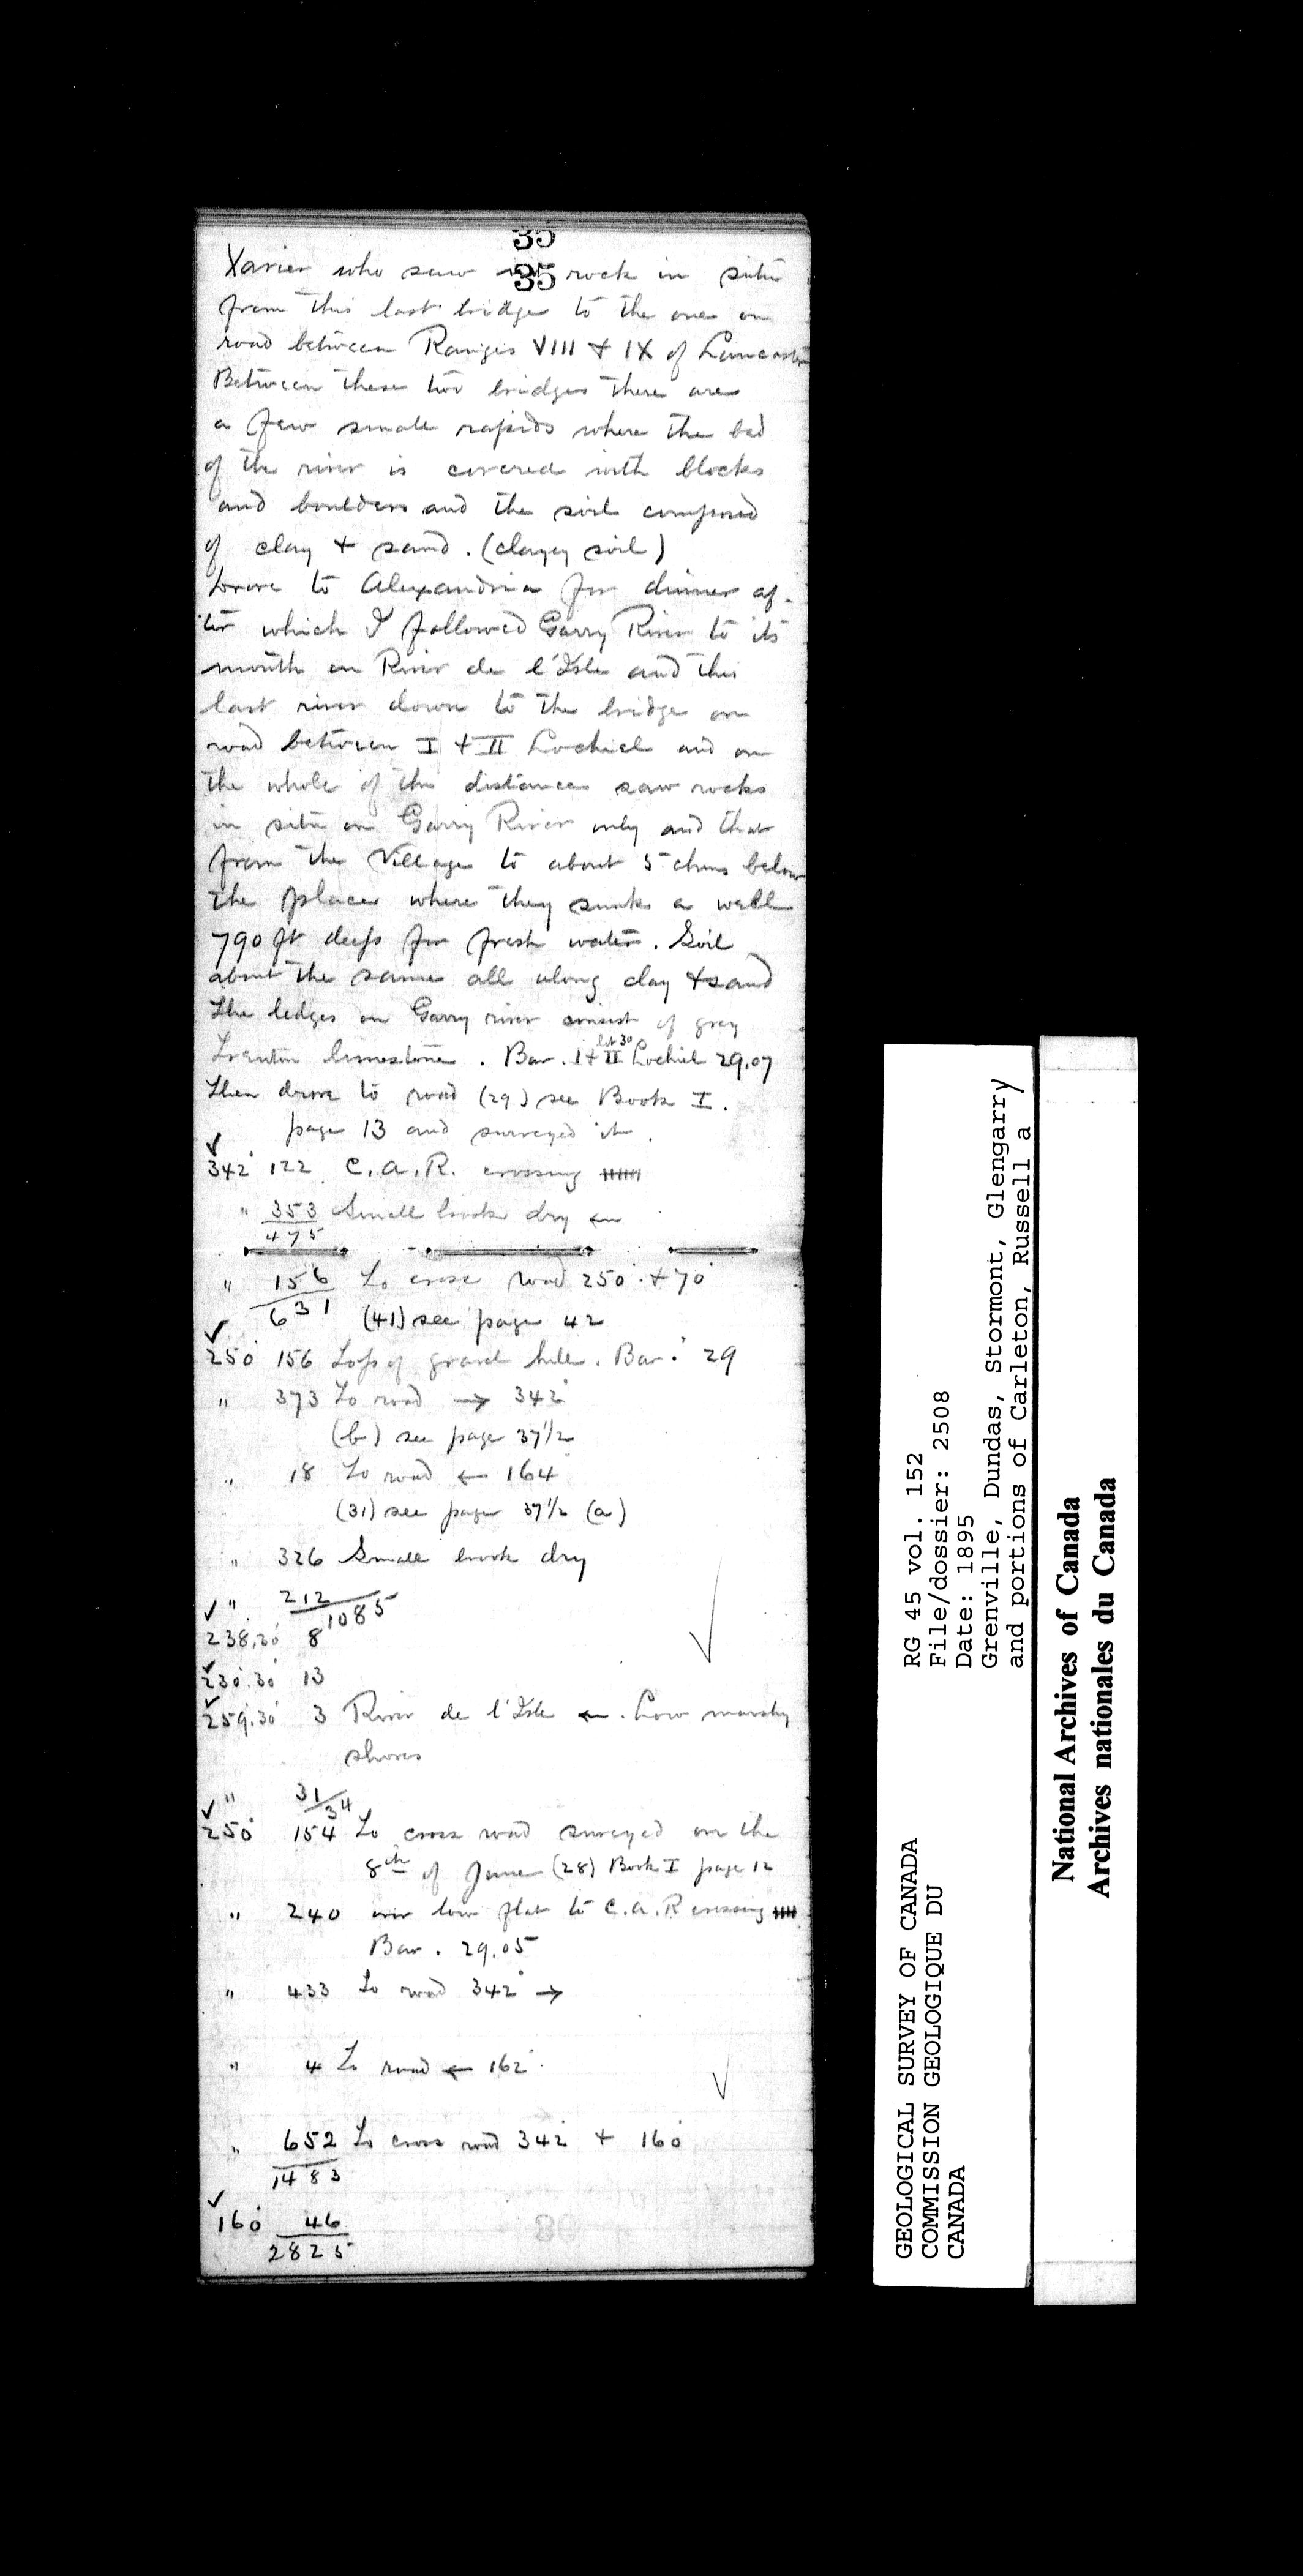 35
35
Xavier who saw rock in situ
from this last bridge to the one on
road between Ranges VIII + IX of Lancaster
Between these two bridges there are
a few small rapids where the bed
of the river is covered with blocks
and boulders and the soil composed
of clay + sand. (clayey soil)
Drove to Alexandria for dinner af-
ter which I followed Garry River to its
mouth on River de l'Isle and this
last river down to the bridge on
road between I + II Lochiel and on
the whole of the distance saw rocks
in situ on Garry River only and that
from the Village to about 5 chns below
the place where they sunk a well
790 ft deep for fresh water. Soil
about the same all along clay + sand
The ledges on Garry river consist of grey
Trenton limestone. Bar. I + II lot 30 Lochiel 29.07
Then drove to road (29) see Book I.
page 13 and surveyed it.
✓
342° 122 C.A.R. crossing
" 353 Small brook dry ←
475
" 156 To cross road 250° + 70°
631 (41) see page 42
✓
250° 156 Top of gravel hill. Bar. 29
" 373 To road → 342°
(b) see page 37 1/2
" 18 To road ← 164°
(31) see page 37 1/2 (a)
" 326 Small brook dry
" 212
✓ 1085
238.30 8
✓
230.30 13
✓
259.30 3 River de l'Isle ←. Low marshy
shores
" 31
✓ 34
250° 154 To cross road surveyed on the
8th of June (28) Book I page 12
" 240 over low flat to C.A.R crossing
Bar. 29.05
" 433 To road 342° →
" 4 To road ← 162°
" 652 To cross road 342° + 160°
1483
✓
160° 46
2825
RG 45 vol. 152
File/dossier: 2508
Date: 1895
Grenville, Dundas, Stormont, Glengarry
and portions of Carleton, Russell a
GEOLOGICAL SURVEY OF CANADA
COMMISSION GEOLOGIQUE DU
CANADA
National Archives of Canada
Archives nationales du Canada